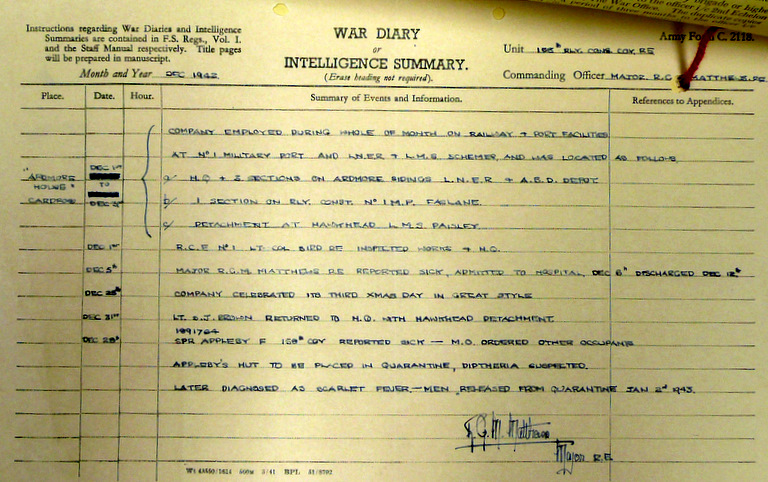 Instructions regarding War Diaries and Intelligence
Summaries are contained in F.S. Regs., Vol. I.
and the Staff Manual respectively. Title pages
will be prepared in manuscript.
Month and Year DEC 1942
WAR DIARY
or
INTELLIGENCE SUMMARY.
(Erase heading not required).
Army Form C. 2118.
Unit 158th RLY. CONS. COY. RE
Commanding Officer MAJOR. R.G. MATTHEWS. RE.
Place. Date. Hour. Summary of Events and Information. References to Appendices.
COMPANY EMPLOYED DURING WHOLE OF MONTH ON RAILWAY & PORT FACILITIES
AT No 1 MILITARY PORT AND L.N.E.R & L.M.S. SCHEMES, AND WAS LOCATED AS FOLLOWS.
"ARDMORE HOUSE" CARDROSS DEC 1st TO DEC 31st
a/ H.Q & 2 SECTIONS ON ARDMORE SIDINGS L.N.E.R & A.B.D. DEPOT.
b/ 1 SECTION ON RLY. CONST. No 1 M.P. FASLANE.
c/ DETACHMENT AT HAWKHEAD L.M.S PAISLEY.
DEC 1st R.C.E No 1 LT. COL BIRD RE INSPECTED WORKS & H.Q.
DEC 5th MAJOR R.G.M. MATTHEWS R.E REPORTED SICK, ADMITTED TO HOSPITAL, DEC 6th DISCHARGED DEC 12th
DEC 25th COMPANY CELEBRATED ITS THIRD XMAS DAY IN GREAT STYLE
DEC 31st LT. D.J. BROWN RETURNED TO H.Q. WITH HAWKHEAD DETACHMENT.
1891764
DEC 28th SPR APPLEBY F 158th COY REPORTED SICK — M.O. ORDERED OTHER OCCUPANTS
APPLEBY'S HUT TO BE PLACED IN QUARANTINE, DIPTHERIA SUSPECTED.
LATER DIAGNOSED AS SCARLET FEVER. — MEN RELEASED FROM QUARANTINE JAN 2nd 1943.
R.G.M. Matthews
Major R.E